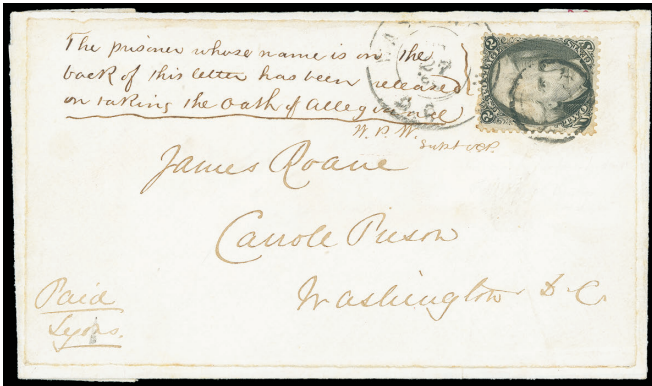 The prisoner whose name is on the
back of this letter has been released
on taking the Oath of Allegiance
W. P. W.
Supt OCP.
James Roane
Carrole Prison
Washington D. C.
Paid
Lyons.
2 2